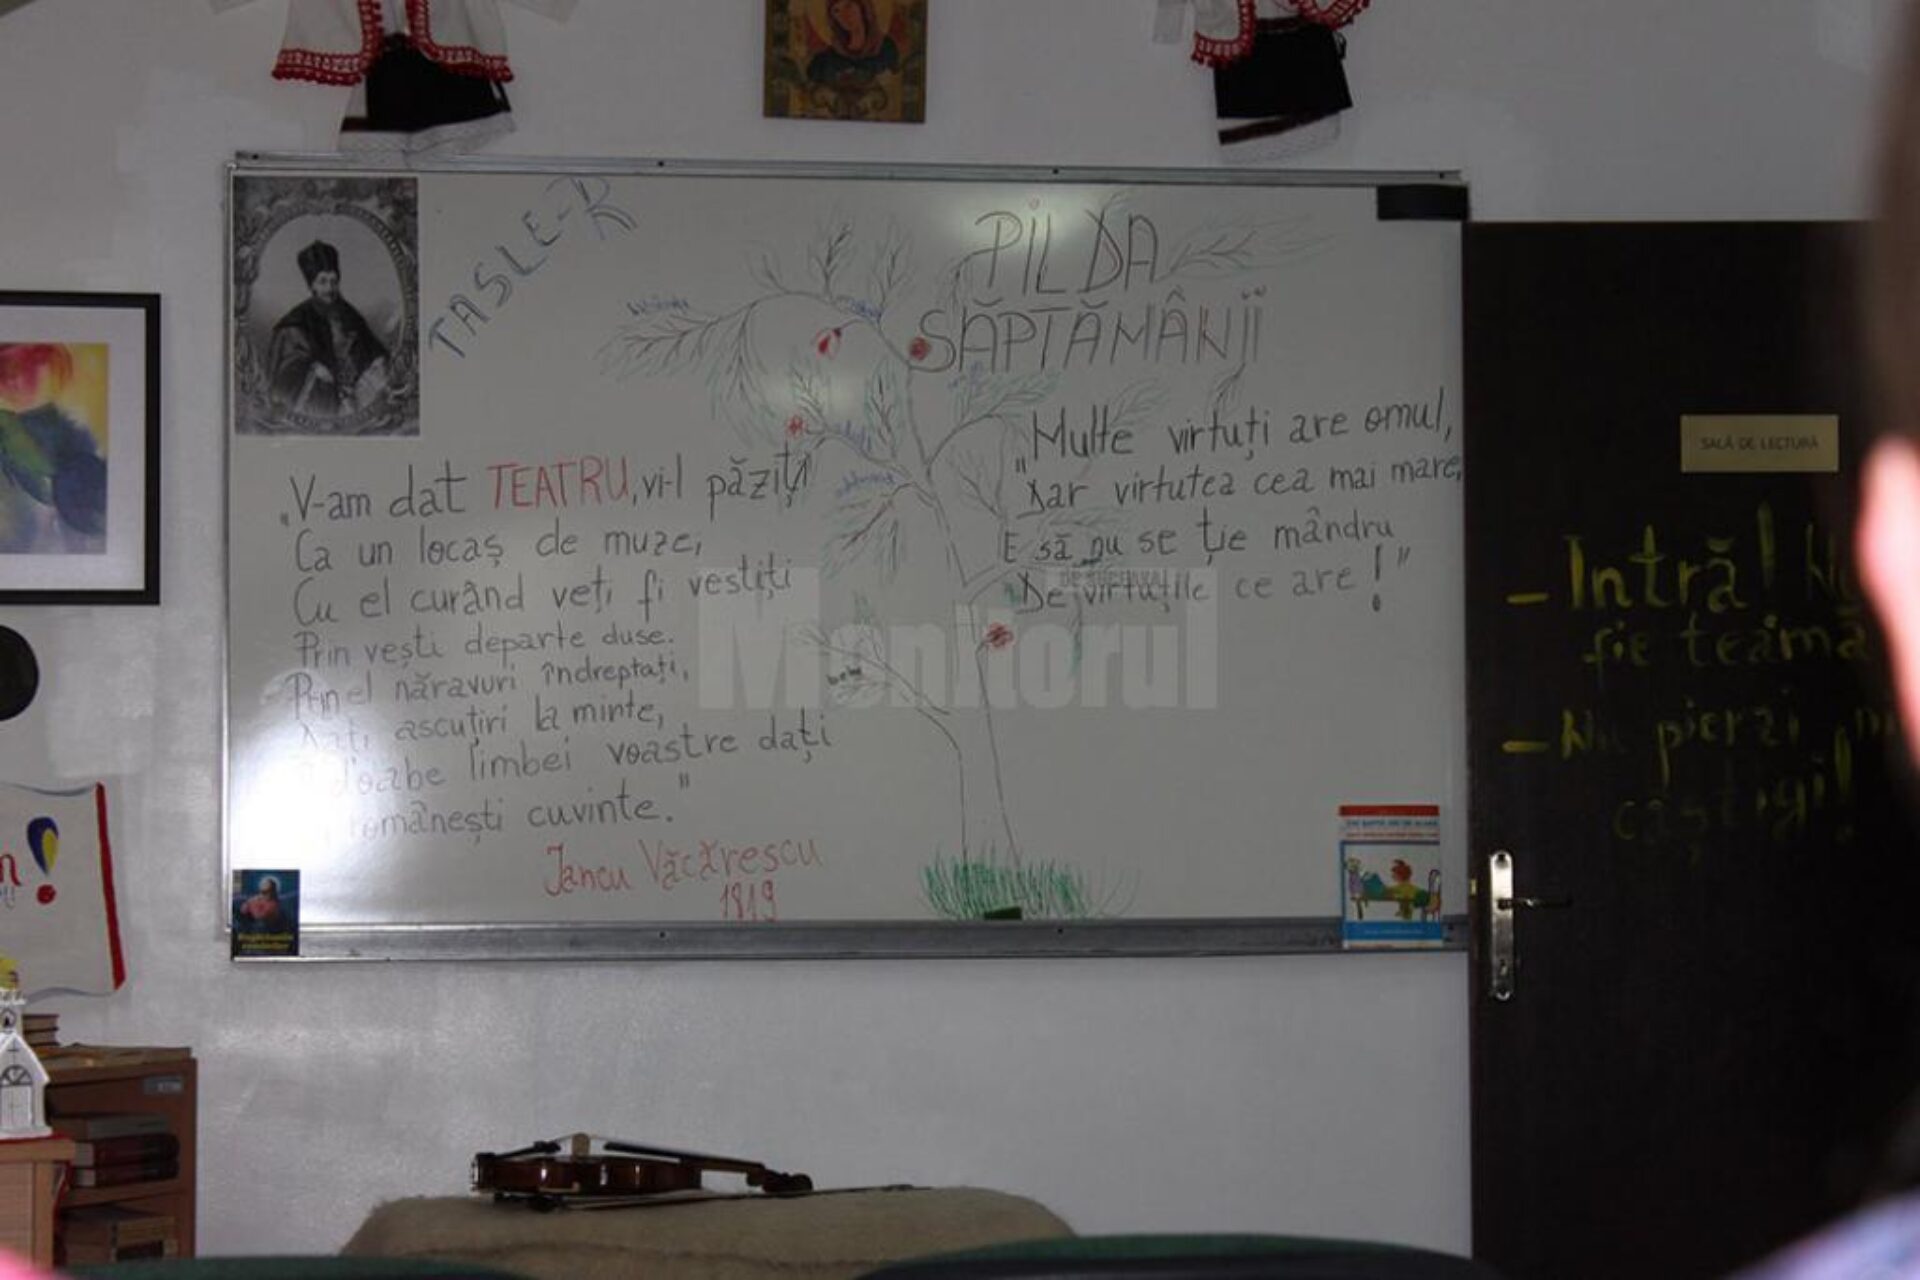 TASLE-R
PILDA
SĂPTĂMÂNII
"V-am dat TEATRU, vi-l păziți
Ca un locaș de muze,
Cu el curând veți fi vestiți
Prin vești departe duse.
Prin el năravuri îndreptați,
Dați ascuțiri la minte,
limbei voastre dați
românești cuvinte."
Iancu Văcărescu
1819
"Multe virtuți are omul,
Dar virtutea cea mai mare,
E să nu se ție mândru
De virtuțile ce are!"
Monitorul
SALĂ DE LECTURĂ
- Intră! Nu
fie teamă
- Nu pierzi
câștigi!